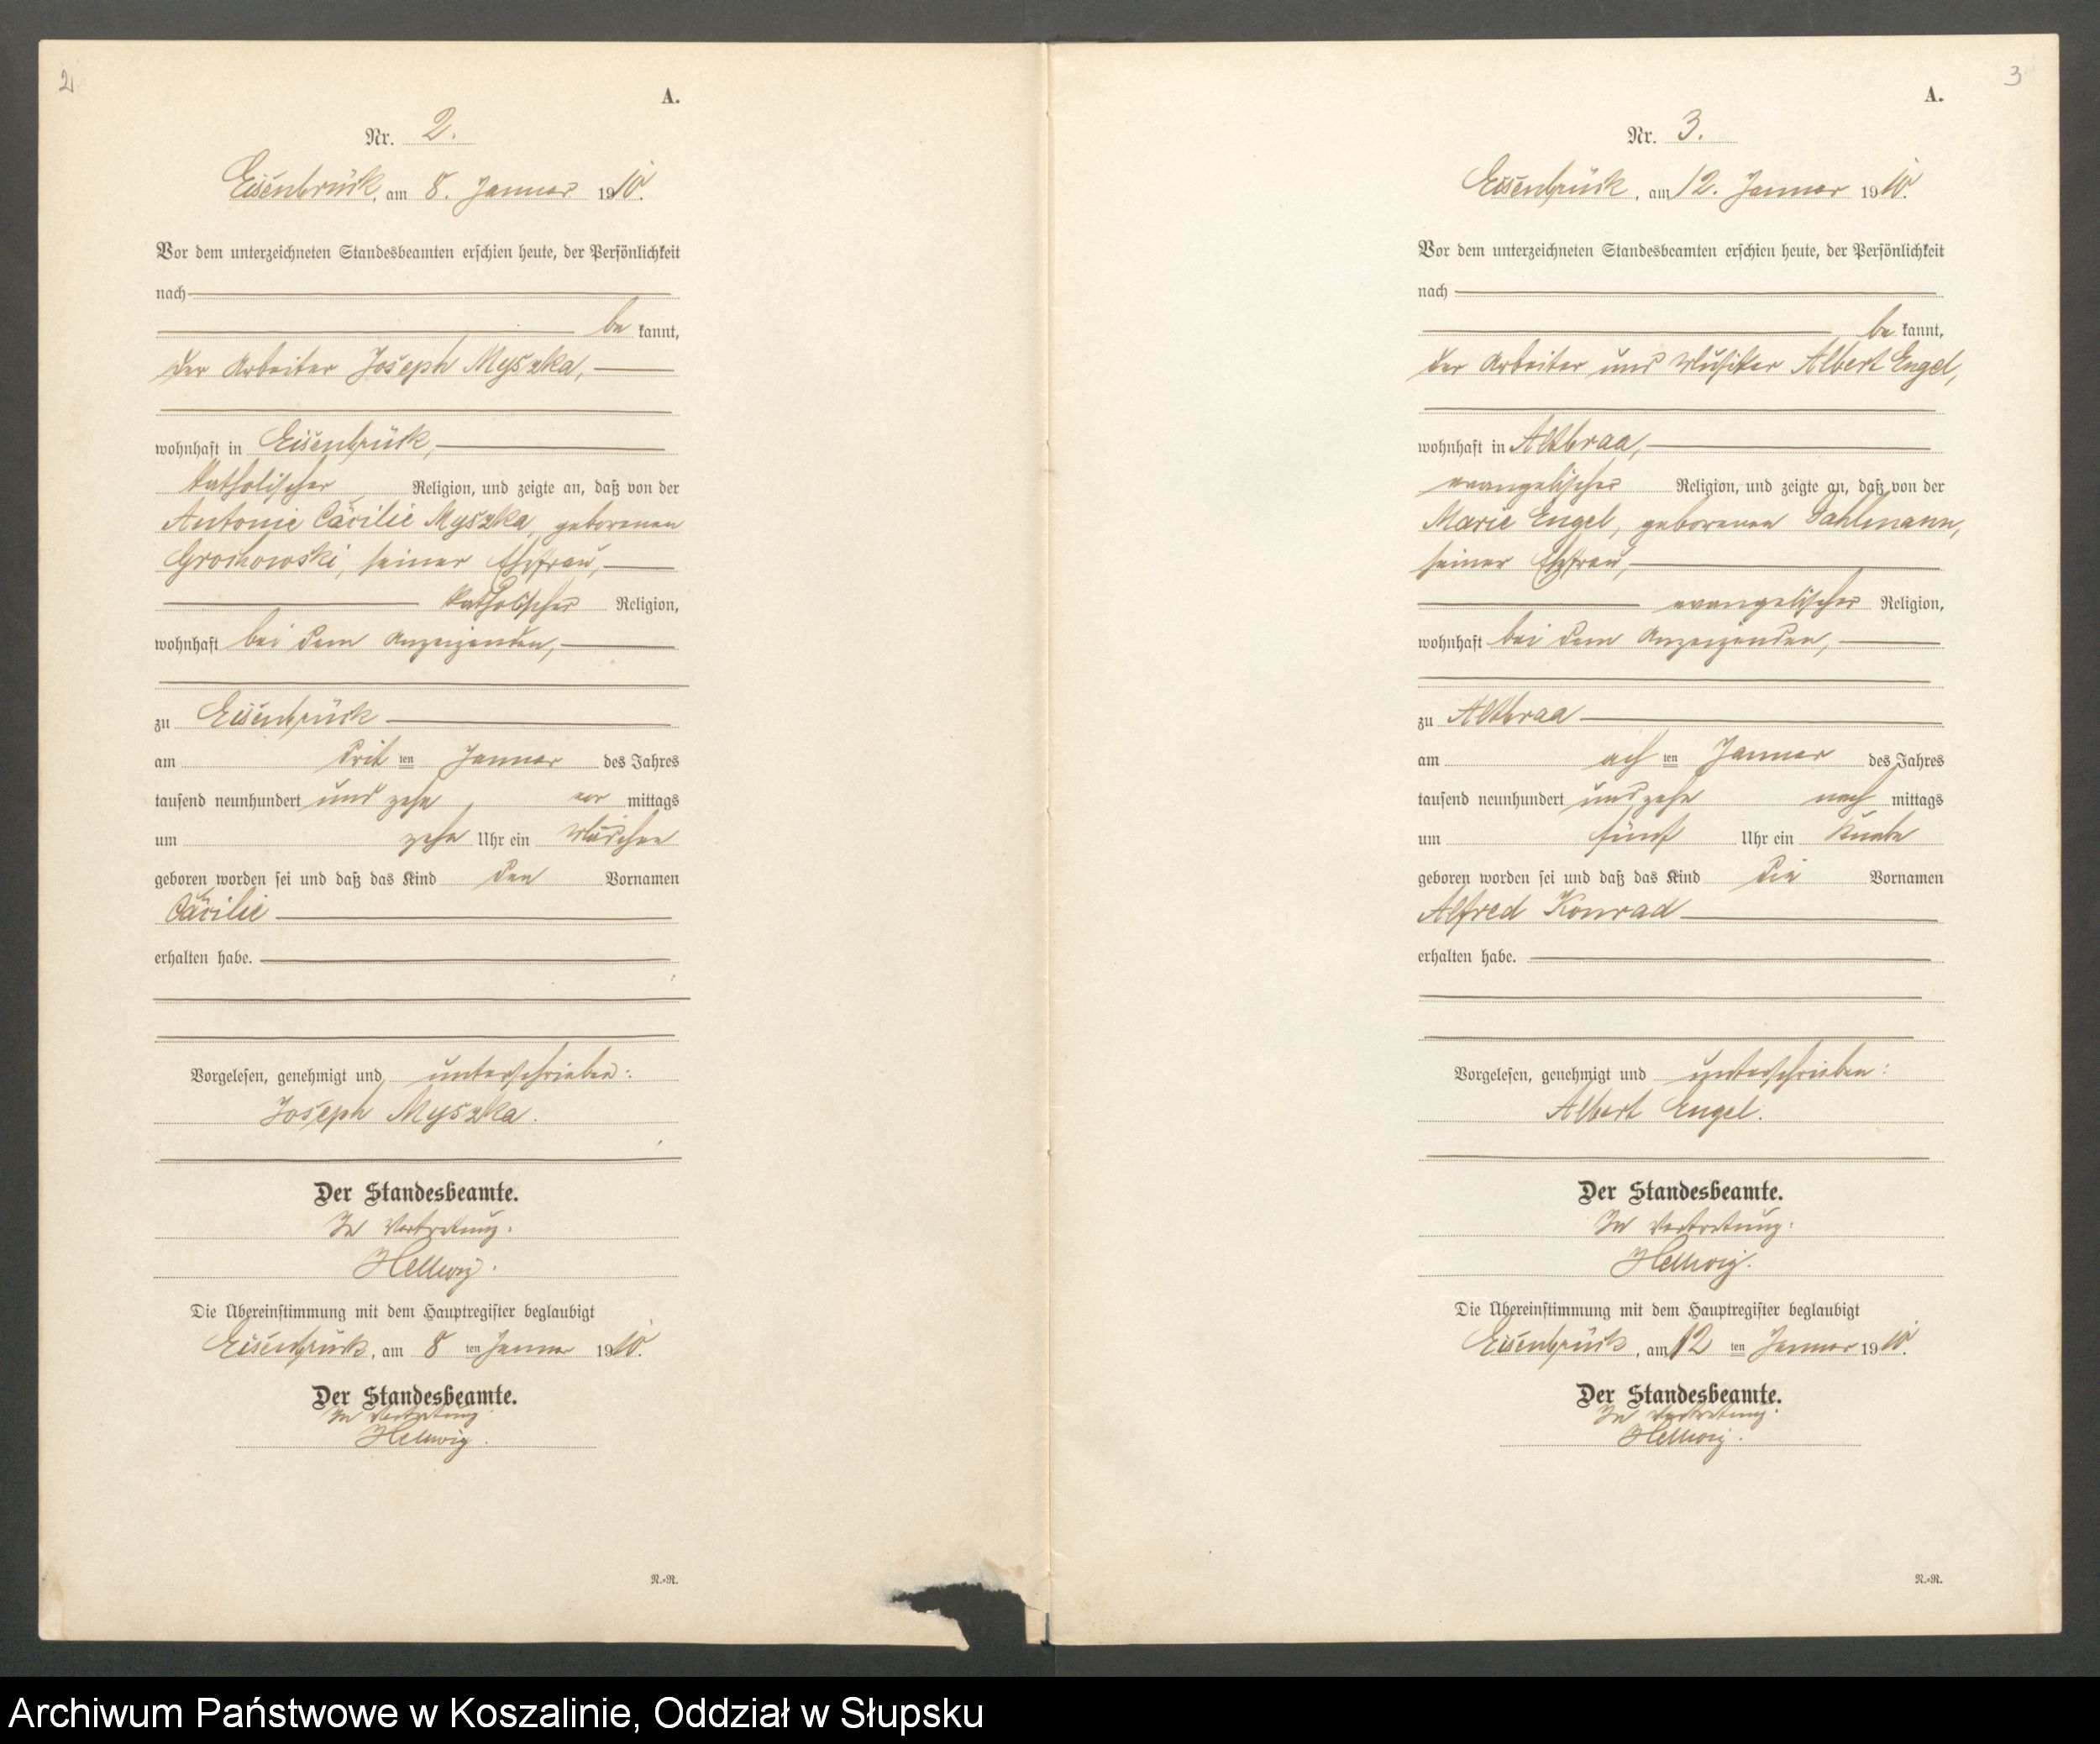 2
A.
Nr. 2.
Eisenbrück, am 8. Januar 1910.
Vor dem unterzeichneten Standesbeamten erschien heute, der Persönlichkeit
nach
be kannt,
der Arbeiter Joseph Myszka,
wohnhaft in Eisenbrück,
katholischer Religion, und zeigte an, daß von der
Antonie Cäcilie Myszka, geborenen
Grochowski, seiner Ehefrau,
katholischer Religion,
wohnhaft bei dem Anzeigenden,
zu Eisenbrück
am drit ten Januar des Jahres
tausend neunhundert und zehn vor mittags
um zehn Uhr ein Mädchen
geboren worden sei und daß das Kind den Vornamen
Cäcilie
erhalten habe.
Vorgelesen, genehmigt und unterschrieben:
Joseph Myszka.
Der Standesbeamte.
In Vertretung:
Hellwig.
Die Übereinstimmung mit dem Hauptregister beglaubigt
Eisenbrück, am 8 ten Januar 1910.
Der Standesbeamte.
In Vertretung:
Hellwig.
N.=R.
3
A.
Nr. 3.
Eisenbrück, am 12. Januar 1910.
Vor dem unterzeichneten Standesbeamten erschien heute, der Persönlichkeit
nach
be kannt,
der Arbeiter und Musiker Albert Engel,
wohnhaft in Altbraa,
evangelischer Religion, und zeigte an, daß von der
Marie Engel, geborenen Dahlmann,
seiner Ehefrau,
evangelischer Religion,
wohnhaft bei dem Anzeigenden,
zu Altbraa
am ach ten Januar des Jahres
tausend neunhundert und zehn nach mittags
um fünf Uhr ein Knabe
geboren worden sei und daß das Kind die Vornamen
Alfred Konrad
erhalten habe.
Vorgelesen, genehmigt und unterschrieben:
Albert Engel.
Der Standesbeamte.
In Vertretung:
Hellwig.
Die Übereinstimmung mit dem Hauptregister beglaubigt
Eisenbrück, am 12 ten Januar 1910.
Der Standesbeamte.
In Vertretung:
Hellwig.
N.=R.
Archiwum Państwowe w Koszalinie, Oddział w Słupsku